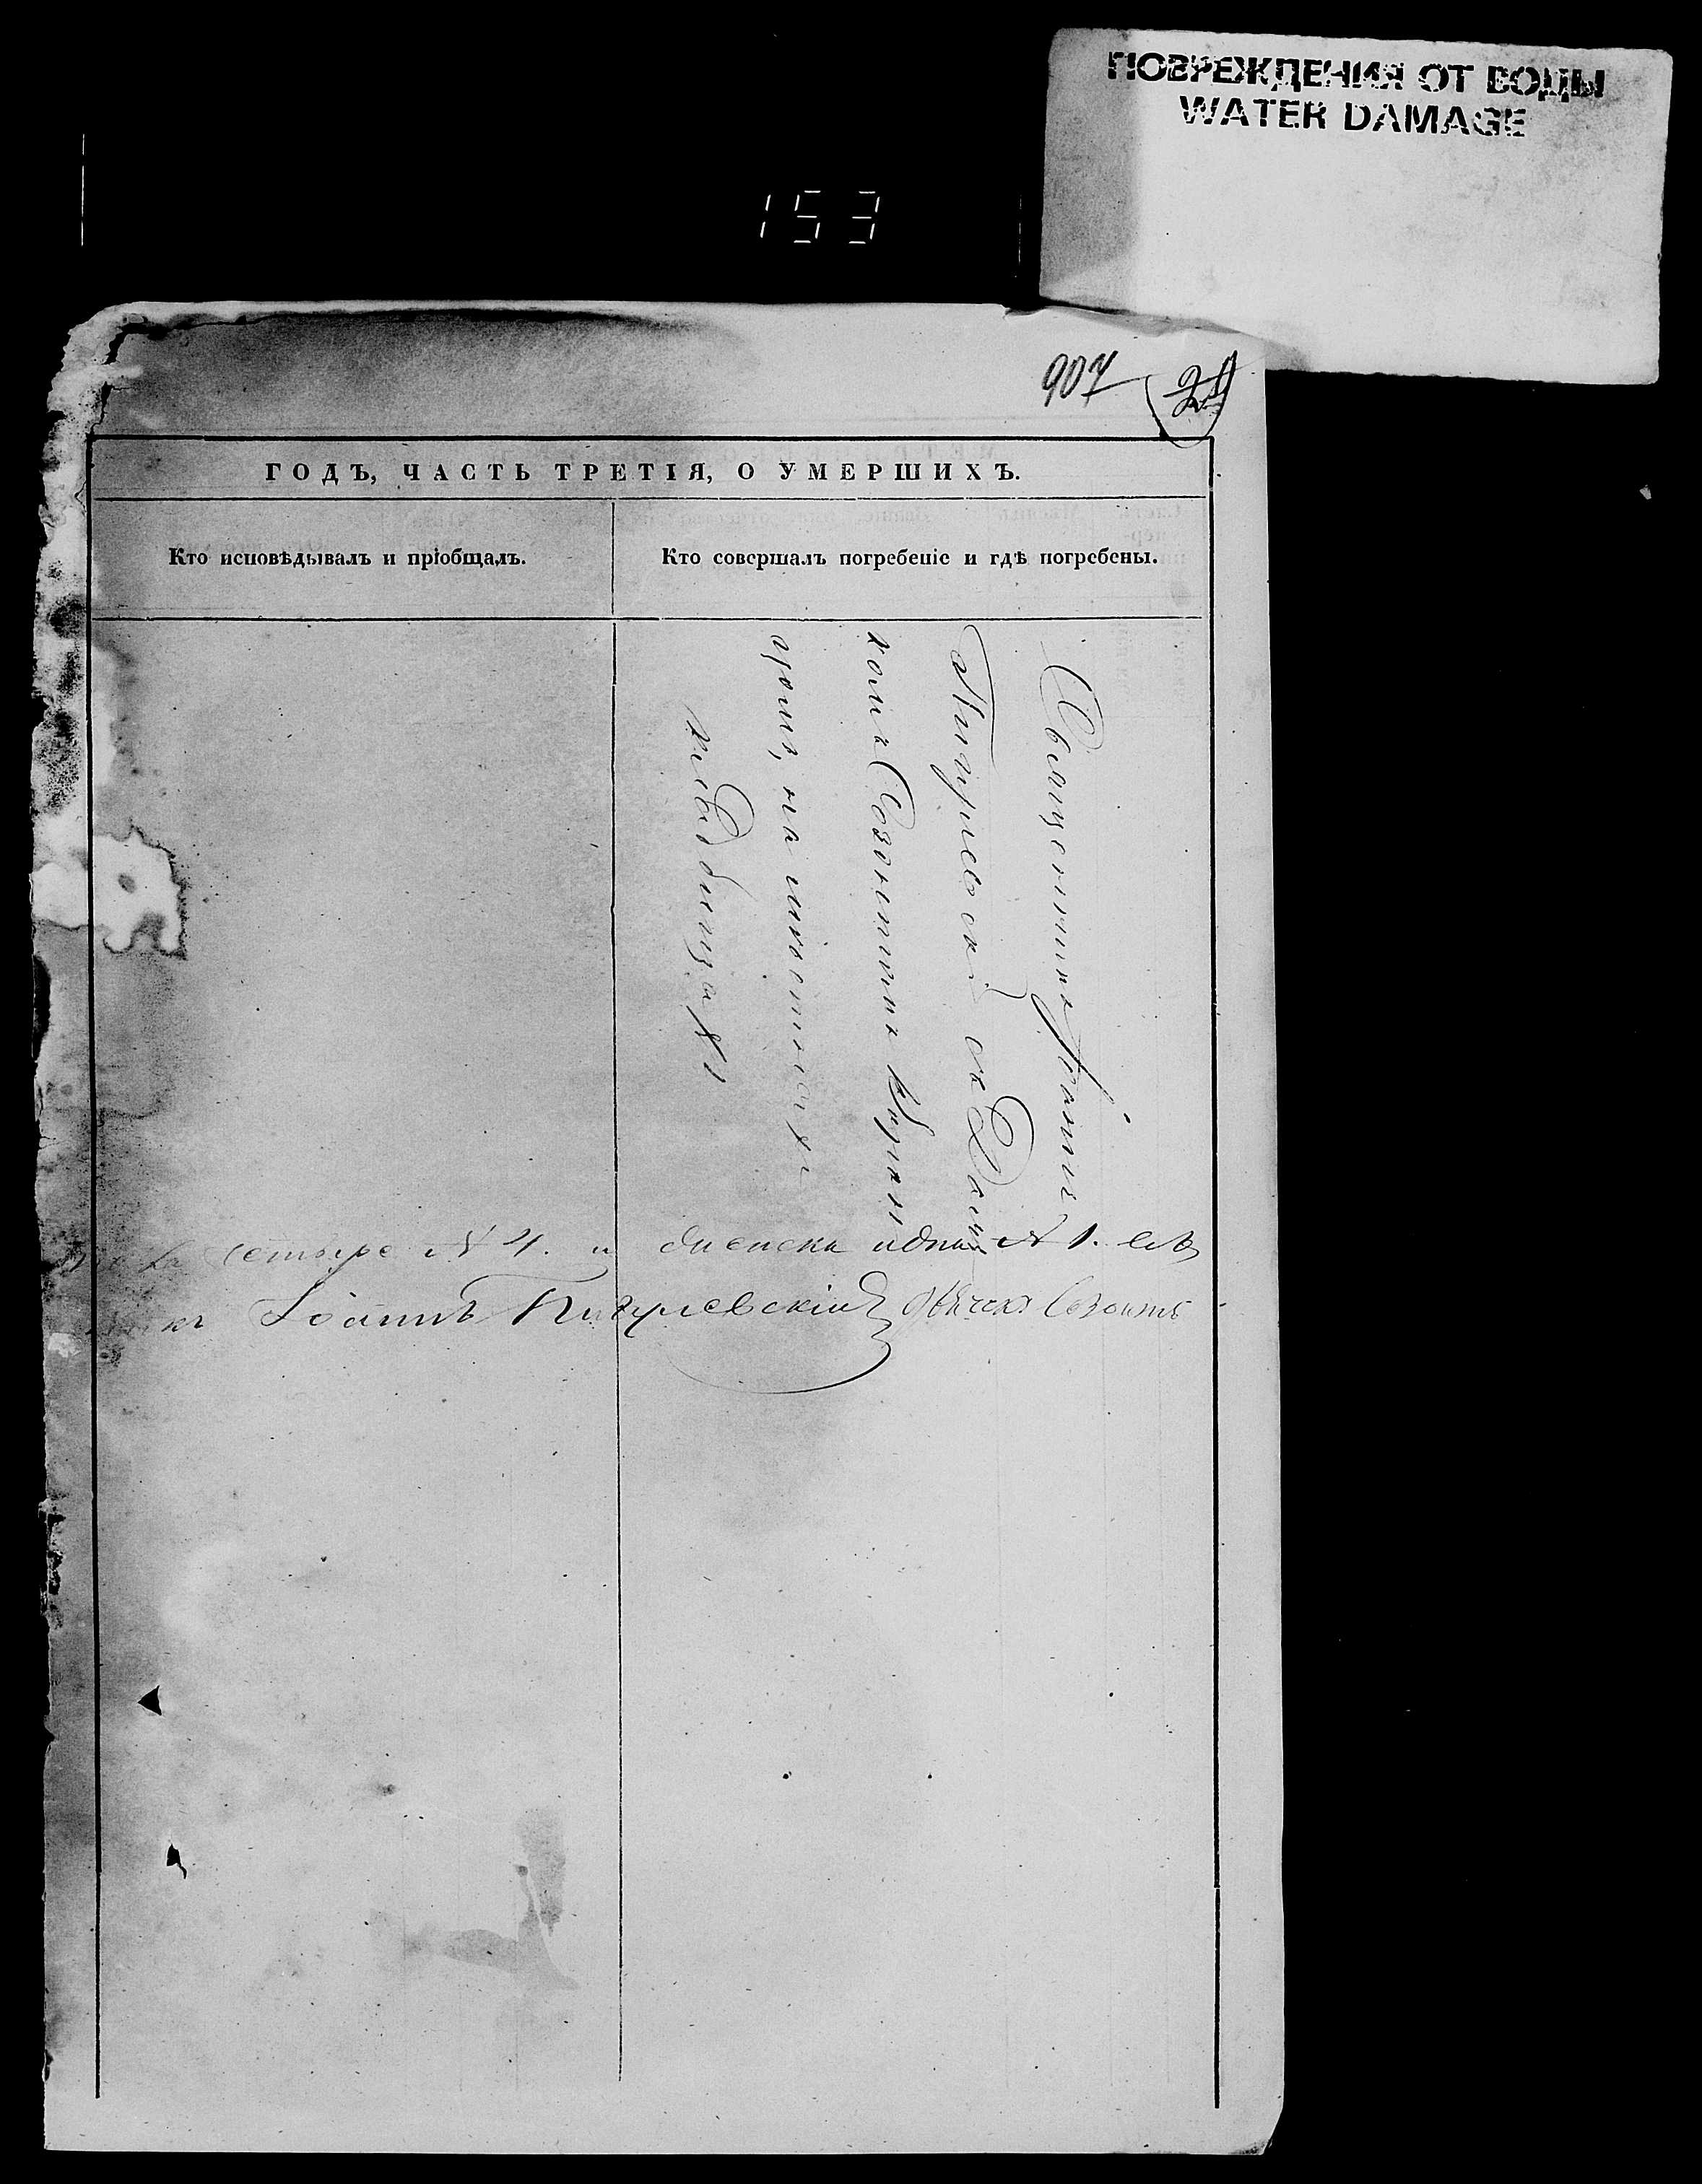 ПОВРЕЖДЕНИЯ ОТ ВОДЫ
WATER DAMAGE
153
907
ГОДЪ, ЧАСТЬ ТРЕТІЯ, О УМЕРШИХЪ.
Кто исповѣдывалъ и пріобщалъ.
Кто совершалъ погребеніе и гдѣ погребены.
Священникъ Іоаннъ
Пигулевскій съ Дьяч
комъ Созонтомъ
на мѣстномъ
кладбищѣ
четыре № 4. и женска одна № 1.
Іоаннъ Пигулевскій Дьячекъ Созонтъ